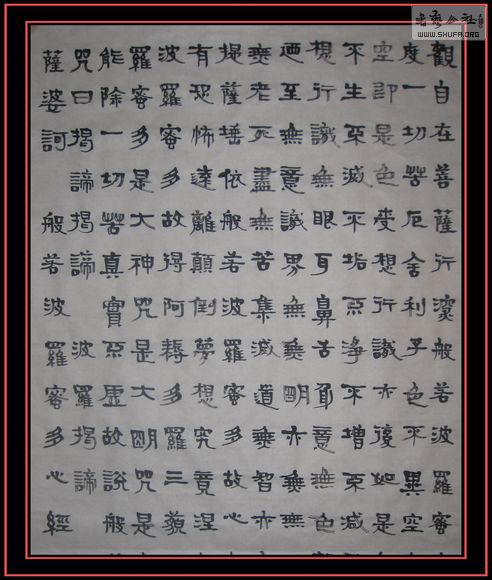 書藝公社
WWW.SHUFA.ORG
觀自在菩薩行深般若波羅蜜
度一切苦厄舍利子色不異空
空即是色受想行識亦復如是
不生不滅不垢不淨不增不減
想行識無眼耳鼻舌身意無色
廼至無意識界無無明亦無無
無老死盡無苦集滅道無智亦
提薩埵依般若波羅蜜多故心
有恐怖遠離顛倒夢想究竟涅
波羅蜜多故得阿耨多羅三藐
羅蜜多是大神咒是大明咒是
能除一切苦真實不虛故說般
咒曰揭諦揭諦 波羅揭諦
薩婆訶 般若波羅蜜多心經